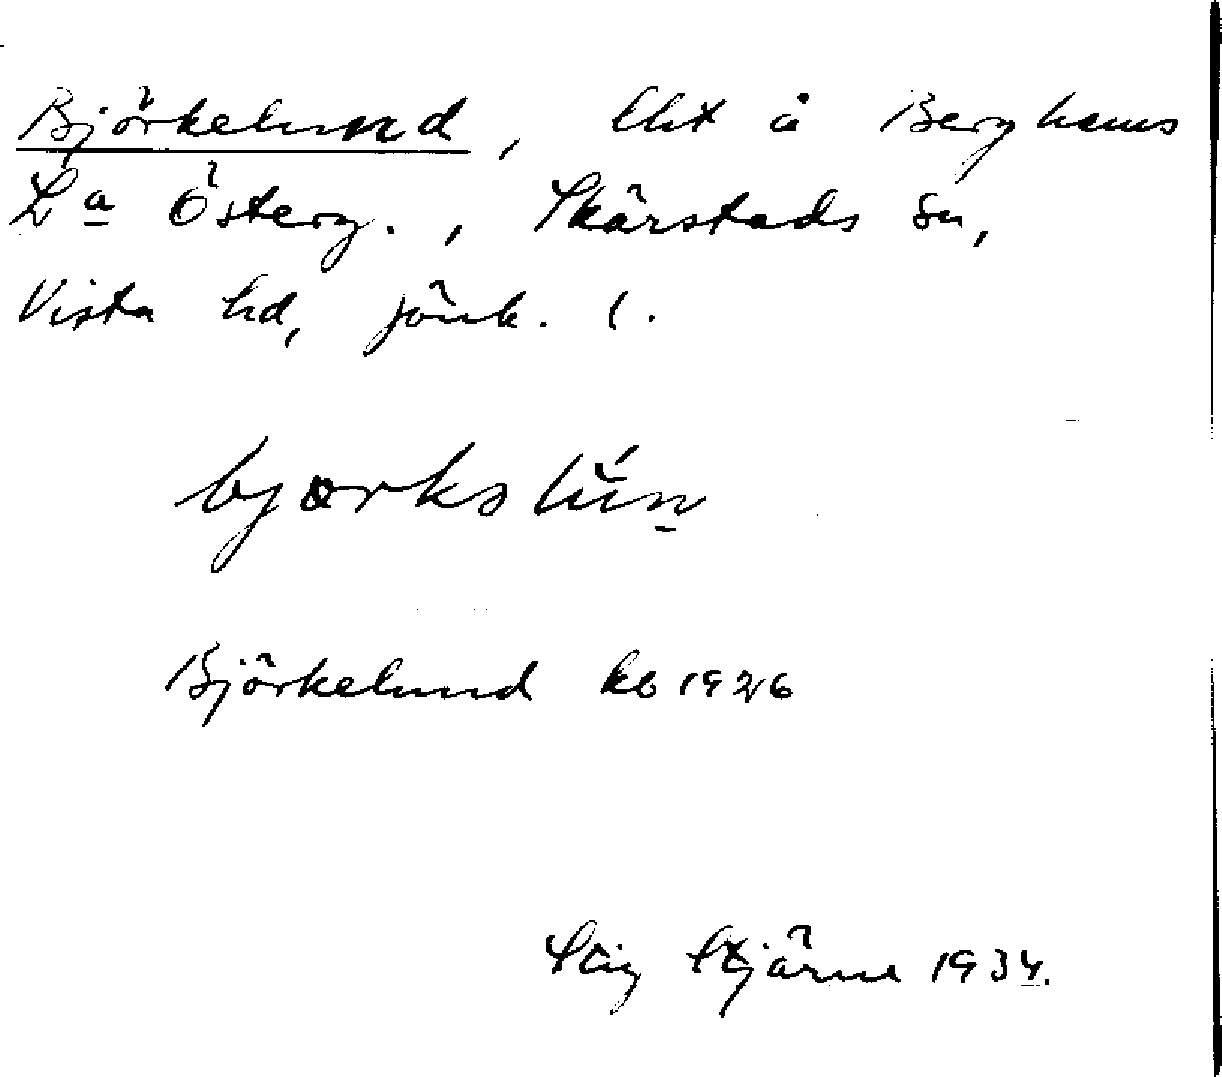 Björkelund, lht å Berghems
La Österg., Skärstads sn,
Vista hd, Jönk. l.
bjœrkslún
Björkelund kb 1926
Stig Stjärne 1934.